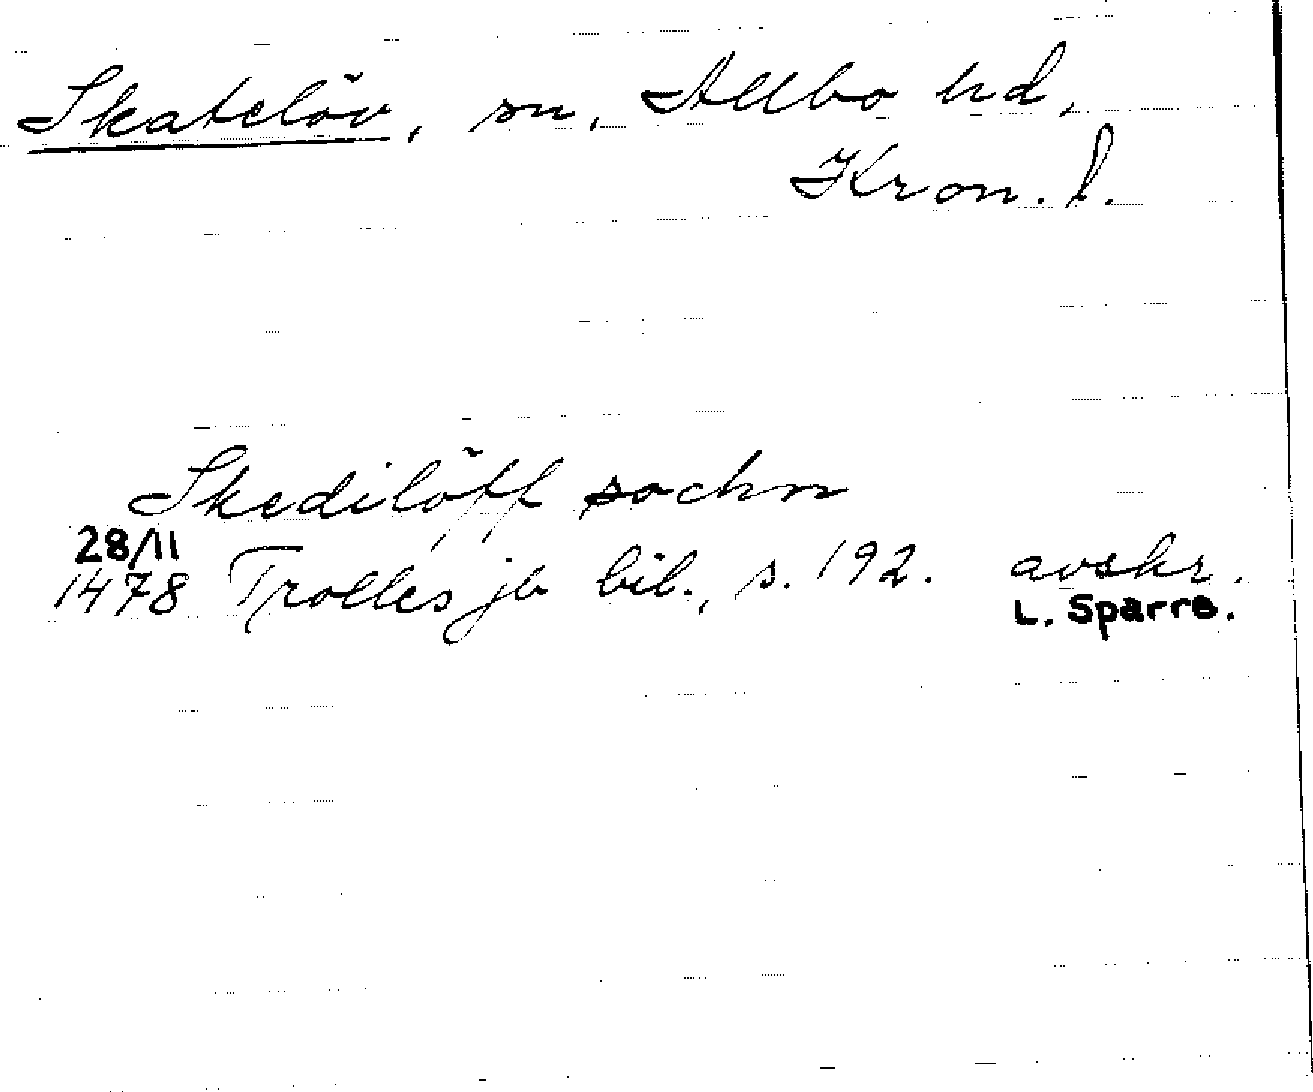 Skatelöv, sn, Allbo hd,
Kron. l.
Skedilöff sochn
28/11
1478 Trolles jb bil., s. 192. avskr.
L. Sparre.